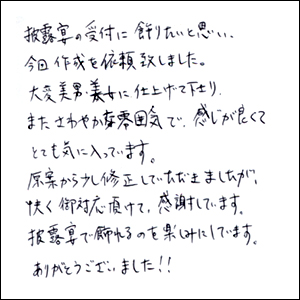 披露宴の受付に飾りたいと思い、
今回作成を依頼致しました。
大変美男・美女に仕上げて下さり、
またさわやかな雰囲気で、感じが良くて
とても気に入っています。
原案から少し修正していただきましたが、
快く御対応頂けて、感謝しています。
披露宴で飾れるのを楽しみにしています。
ありがとうございました!!